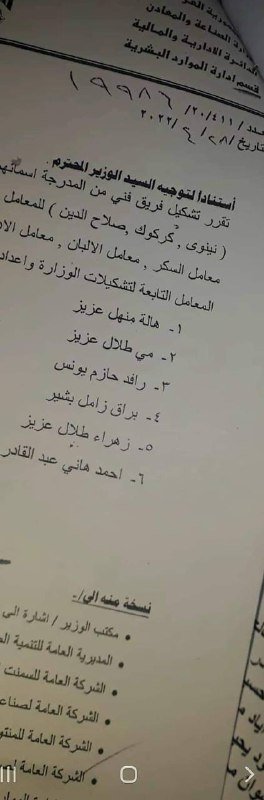 وزارة الصناعة والمعادن
الدائرة الادارية والمالية
قسم إدارة الموارد البشرية
١٩٩٨٦
العدد / ٢٠/٤١١/
تاريخ / ٢٨ / ٤ / ٢٠٢٢
أستناداً لتوجيه السيد الوزير المحترم .
تقرر تشكيل فريق فني من المدرجة اسمائهم
( نينوى , كركوك , صلاح الدين ) للمعامل
معامل السكر , معامل الالبان , معامل
المعامل التابعة لتشكيلات الوزارة واعداد
١- هالة منهل عزيز
٢- مي طلال عزيز
٣- رافد حازم يونس
٤- براق زامل بشير
٥- زهراء طلال عزيز
٦- احمد هاني عبد القادر
نسخة منه الى/-
• مكتب الوزير / اشارة الى
• المديرية العامة للتنمية
• الشركة العامة للسمنت
• الشركة العامة لصناعة
• الشركة العامة
• الشركة العامة